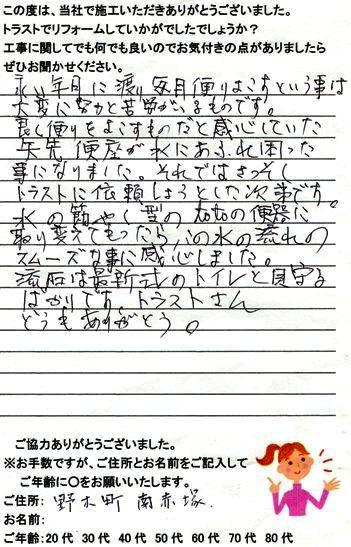 この度は、当社で施工いただきありがとうございました。
トラストでリフォームしていかがでしたでしょうか？
工事に関してでも何でも良いのでお気付きの点がありましたら
ぜひお聞かせください。
永い年月に渡り毎月便りよこすという事は
大変に努力と苦労がいるものです。
良く便りをよこすものだと感心していた
矢先便座が水にあふれ困った
事になりました。それではさっそく
トラストに依頼しようとした次第です。
水の節やく型の
取り変えてもったら、の水の流れの
スムーズな事に感心しました。
流石は最新式のトイレと見守る
ばかりです。トラストさん
どうもありがとう。
ご協力ありがとうございました。
※お手数ですが、ご住所とお名前をご記入して
ご年齢に〇をお願いいたします。
ご住所: 野木町 南赤塚
お名前:
ご年齢:20代 30代 40代 50代 60代 70代 80代